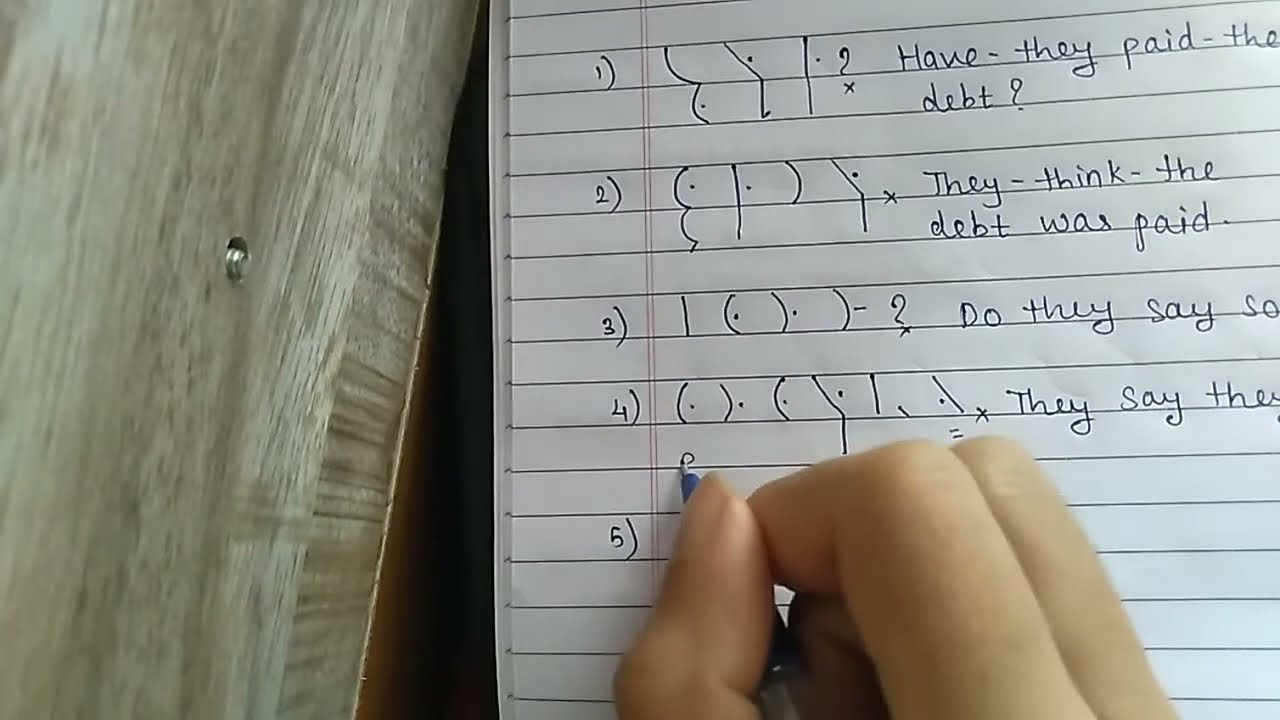 1) ? Have-they paid-the
debt?
2) They-think-the
debt was paid.
3) ? Do they say so
4) They say they
5)